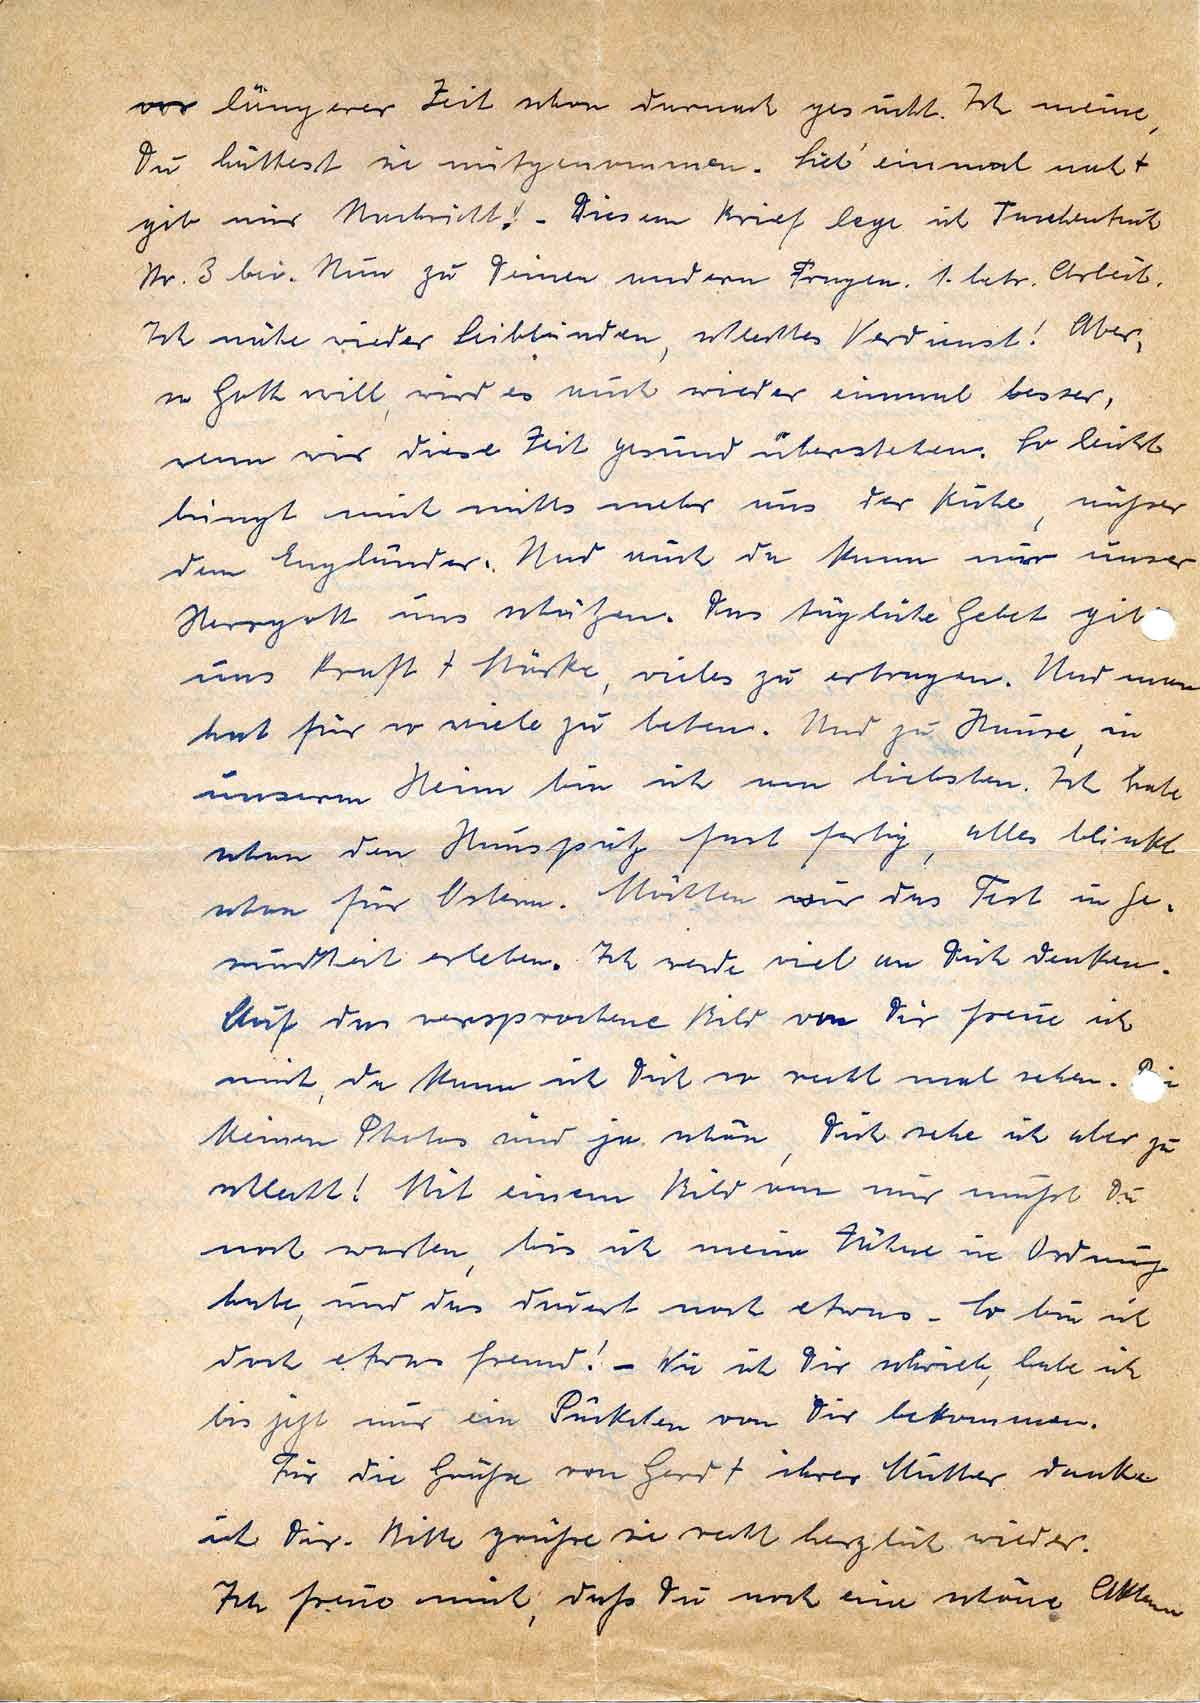 vor längerer Zeit schon darnach gesucht. Ich meine,
Du hättest sie mitgenommen. Sieh' einmal nach +
gib mir Nachricht! - Diesem Brief lege ich Taschentuch
Nr. 3 bei. Nun zu Deinen andern Fragen. 1. betr. Arbeit.
Ich nähe wieder Leibbinden, schlechtes Verdienst! Aber,
so Gott will, wird es auch wieder einmal besser,
wenn wir diese Zeit gesund überstehen. So leicht
bringt mich nichts mehr aus der Ruhe, außer
dem Engländer. Und auch da kann nur unser
Herrgott uns schützen. Das tägliche Gebet gib
uns Kraft + Stärke, vieles zu ertragen. Und man
hat für so viele zu beten. Und zu Hause, in
unserm Heim bin ich am liebsten. Ich habe
schon den Hausputz fast fertig, alles blinkt
schon für Ostern. Möchten wir das Fest in Ge-
sundheit erleben. Ich werde viel an Dich denken.
Auf das versprochene Bild von Dir freue ich
mich, da kann ich Dich so recht mal sehen. Die
kleinen Photos sind ja schön, Dich sehe ich aber zu
schlecht! Mit einem Bild von mir mußt Du
noch warten, bis ich meine Zähne in Ordnung
habe, und das dauert noch etwas. So bin ich
doch etwas fremd! - Wie ich Dir schrieb, habe ich
bis jetzt nur ein Päckchen von Dir bekommen.
Für die Grüße von Gerd + ihrer Mutter danke
ich Dir. Bitte grüße sie recht herzlich wieder.
Ich freue mich, daß Du noch eine schöne Akten